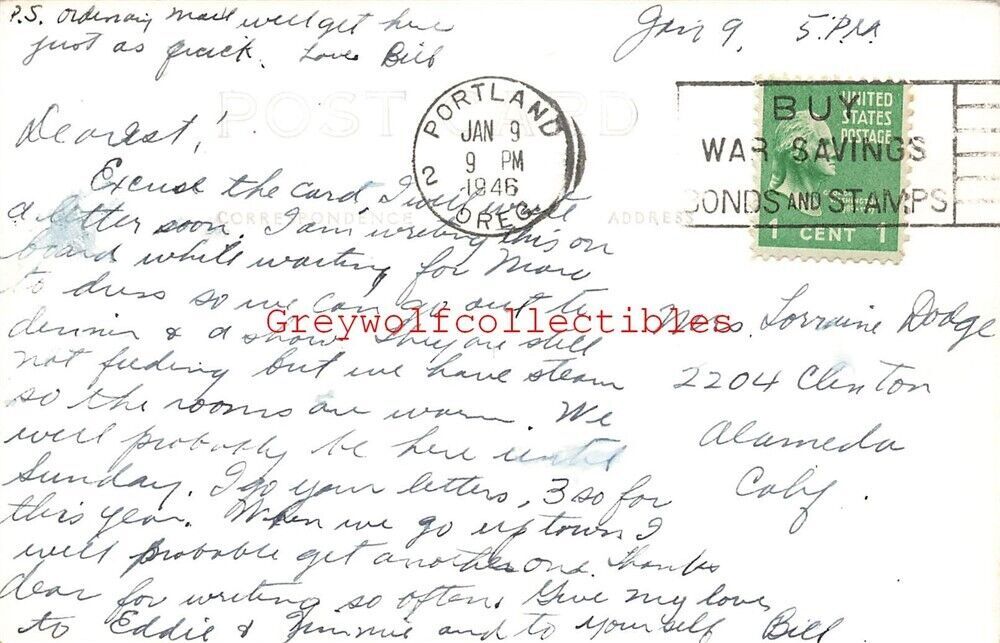 P.S. ordinary mail will get here
just as quick. Love Bill
Jan 9, 5 P.M.
POST CARD
PORTLAND
JAN 9
9 PM
1946
OREG.
2
BUY
WAR SAVINGS
BONDS AND STAMPS
UNITED
STATES
POSTAGE
1 CENT 1
CORRESPONDENCE
ADDRESS
Dearest!
Excuse the card, I will write
a letter soon. I am writing this on
board while waiting for
to dress so we can go out to
dinner & a show. They are still
not feeding but we have steam
so the rooms are warm. We
will probably be here until
Sunday. I go your letters, 3 so far
this year. When we go up town I
will probable get another one. Thanks
dear for writing so often. Give my love
to Eddie & Jimmie and to yourself Bill
Greywolfcollectibles
Mrs. Lorraine Dodge
2204 Clinton
Alameda
Calif.